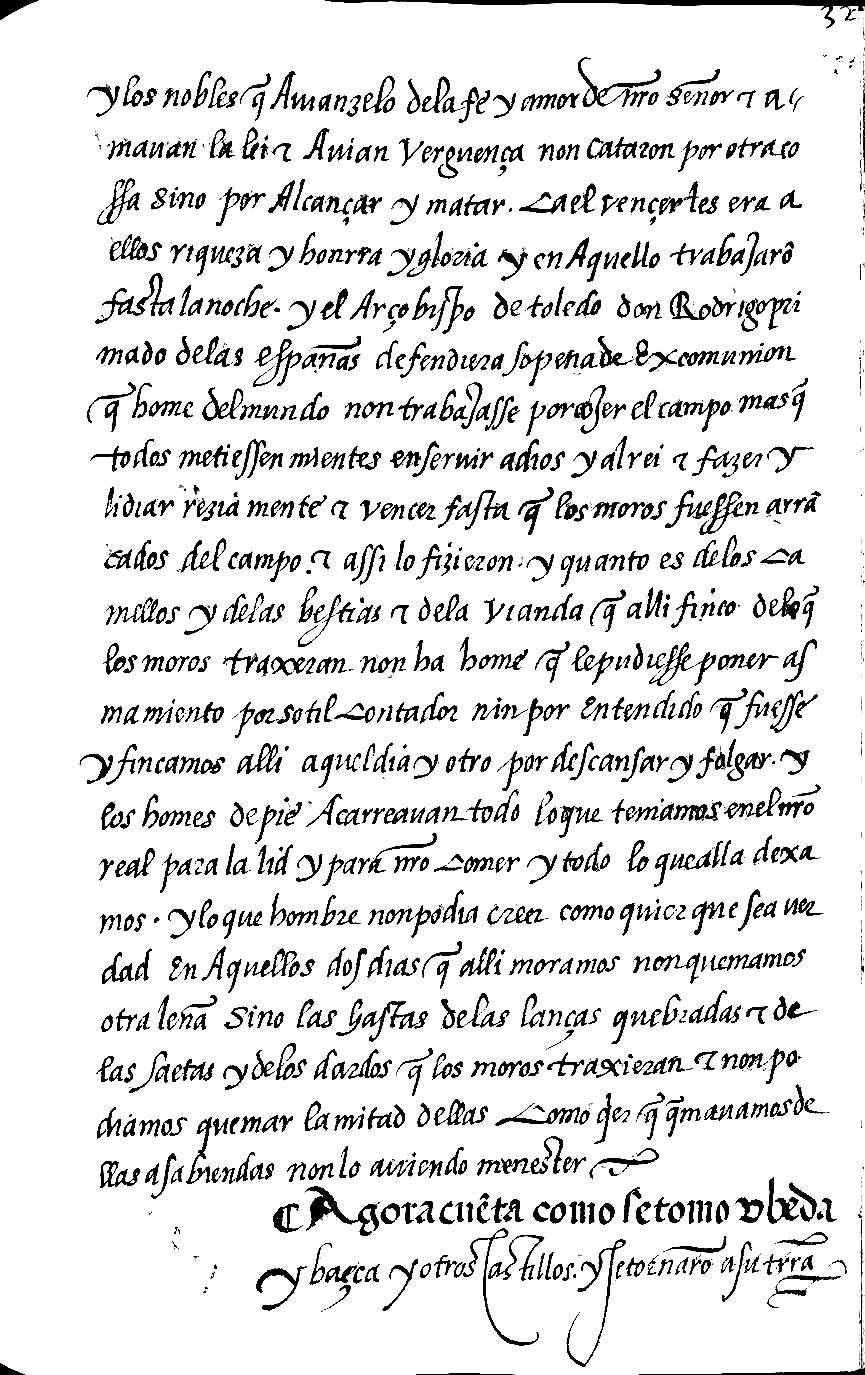 32
y los nobles q̃ Auian zelo dela fe y amor de nr̃o señor ⁊ a
mauan la lei ⁊ Auian Verguença non Cataron por otra co
ssa Sino por Alcançar y matar. Ca el vençerles era a
ellos riqueza y honrra y gloria y en Aquello trabajarõ
fasta la noche. y el Arçobispo de toledo don Rodrigo pri
mado delas españas defendiera so pena de Excomunion
q̃ home del mundo non trabajasse por cojer el campo mas q̃
todos metiessen mientes en seruir a dios y al rei ⁊ fazer y
lidiar rezia mente ⁊ vencer fasta q̃ los moros fuessen arrã
cados del campo. ⁊ assi lo fizieron. y quanto es delos Ca
mellos y delas bestias ⁊ dela vianda q̃ alli finco delo q̃
los moros traxeran non ha home q̃ le pudiesse poner as
mamiento por sotil Contador nin por Entendido q̃ fuesse
y fincamos alli aquel dia y otro por descansar y folgar. y
los homes de pie Acarreauan todo lo que teniamos en el nr̃o
real para la lid y para nr̃o Comer y todo lo que alla dexa
mos. y lo que hombre non podia creer como quier que sea ver
dad En Aquellos dos dias q̃ alli moramos non quemamos
otra leña Sino las hastas delas lanças quebradas ⁊ de
las saetas y delos dardos q̃ los moros traxieran ⁊ non po
diamos quemar la mitad dellas Como q̃er q̃ q̃mauamos de
llas a sabiendas non lo auiendo menester
¶ Agora cuẽta como se tomo vbeda
y baeça y otros Castillos. y se tornarõ a su trr̃a